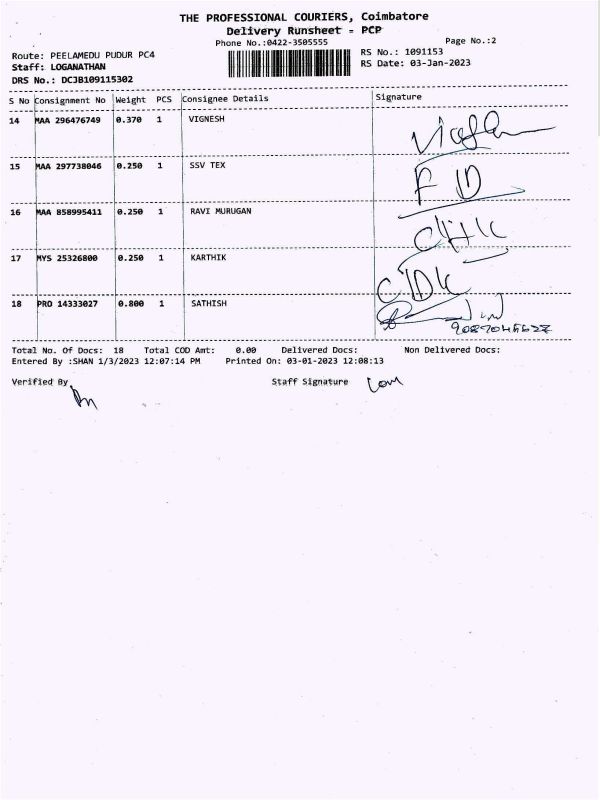 THE PROFESSIONAL COURIERS, Coimbatore
Delivery Runsheet = PCP
Phone No.:0422-3505555 Page No.:2
Route: PEELAMEDU PUDUR PC4 RS No.: 1091153
Staff: LOGANATHAN RS Date: 03-Jan-2023
DRS No.: DCJB109115302
S No Consignment No Weight PCS Consignee Details Signature
14 MAA 296476749 0.370 1 VIGNESH
15 MAA 297738046 0.250 1 SSV TEX
16 MAA 858995411 0.250 1 RAVI MURUGAN
17 MYS 25326800 0.250 1 KARTHIK
18 PRO 14333027 0.800 1 SATHISH
Total No. Of Docs: 18 Total COD Amt: 0.00 Delivered Docs: Non Delivered Docs:
Entered By :SHAN 1/3/2023 12:07:14 PM Printed On: 03-01-2023 12:08:13
Verified By Staff Signature